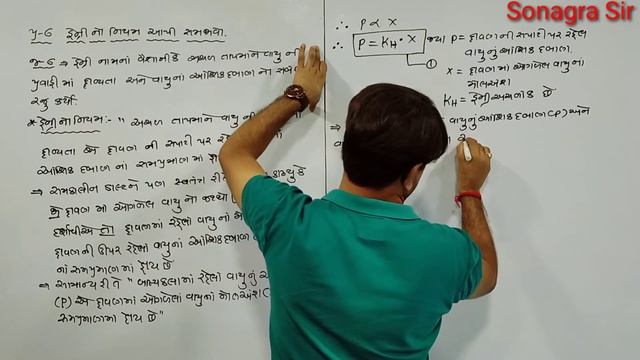 Sonagra Sir
પ્ર-6 હેન્રીનો નિયમ આપી સમજાવો.
જ-6 ⇒ હેન્રી નામનાં વૈજ્ઞાનિકે અચળ તાપમાને વાયુની
પ્રવાહીમાં દ્રાવ્યતા અને વાયુનાં આંશિક દબાણનો
રજુ કર્યો.
* હેન્રીનો નિયમ:- " અચળ તાપમાને વાયુની
દ્રાવ્યતા એ દ્રાવણની સપાટી પર
આંશિક દબાણનાં સમપ્રમાણમાં
⇒ સમકાલીન ડાલ્ટને પણ સ્વતંત્ર રીતે
દ્રાવણમાં ઓગળેલ વાયુનો
દ્રાવણમાં રહેલાં વાયુનાં
દ્રાવણની ઉપર રહેલાં વાયુનાં આંશિક દબાણ
નાં સમપ્રમાણમાં હોય છે
⇒ સામાન્ય રીતે " બાષ્પકલામાં રહેલાં વાયુનું
(P) એ દ્રાવણમાં ઓગળેલાં વાયુનાં મોલઅંશ
સમપ્રમાણમાં હોય છે "
∴ P ∝ X
∴ P = KH · X
①
જ્યાં P = દ્રાવણની સપાટી પર રહેલ
વાયુનું આંશિક દબાણ.
X = દ્રાવણમાં ઓગળેલ વાયુનાં
મોલઅંશ
KH = હેન્રી અચળાંક છે
⇒ વાયુનું આંશિક દબાણ (P) અને